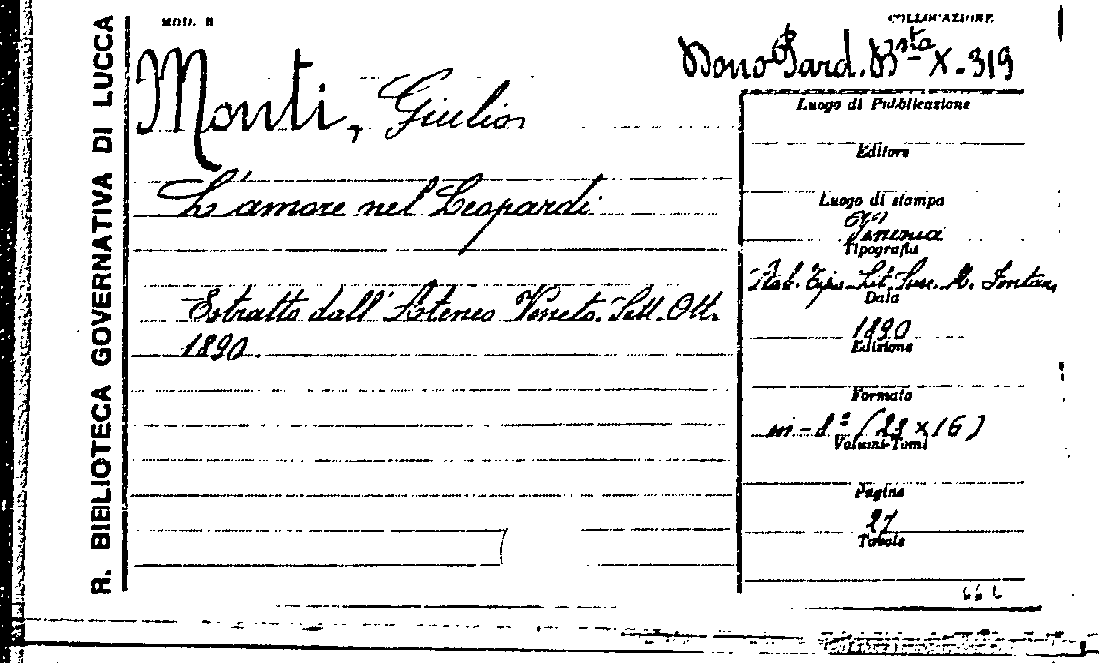 R. BIBLIOTECA GOVERNATIVA DI LUCCA
MOD. B
COLLOCAZIONE
Dono Pard. Bsta X-319
Monti, Giulio
L'amore nel Leopardi
Estratto dall'Ateneo Veneto. Sett. Ott.
1890.
Luogo di Pubblicazione
Editore
Luogo di stampa
Venezia
Tipografia
Stab. Tipo Lit. Succ. M. Fontana
Data
1890
Edizione
Formato
in-8º (23x16)
Volumi-Tomi
Pagine
27
Tavole